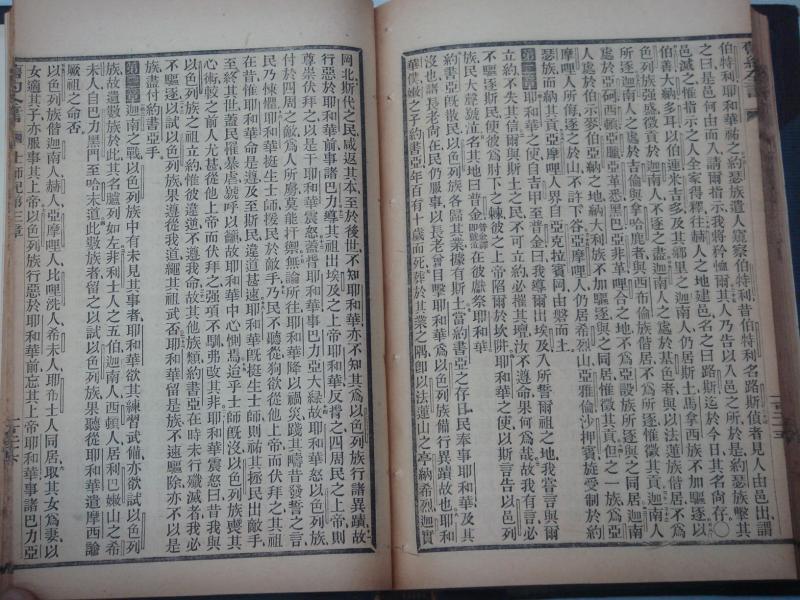 舊約全書
伯特利耶和華祐之約瑟族遣人窺察伯特利昔伯特利名路斯偵者見人由邑出謂
之曰是邑何由而入請爾指示我將矜恤爾其人乃告以入邑之所於是約瑟族擊其
邑滅之惟指示之人全家得釋往赫人之地建邑名之曰路斯迄於今日其名尚存〇
伯善大納多耳以伯連米吉多及其鄉里之迦南人仍居斯土馬拿西族不加驅逐以
色列族强盛徵貢於迦南人不逐之盡迦南人之處於基色者與以法蓮族偕居不爲
所逐迦南人之處於吉倫與拿哈鹿者與西布倫族偕居不爲所逐惟徵其貢迦南人
之處於亞柯西頓亞黑革悉黑巴亞非革哩合之地不爲亞設族所逐與之同居迦南
人處於伯示麥伯亞納之地納大利族不加驅逐與之同居惟徵其貢但之一族爲亞
摩哩人所侮逐之於山不許下谷亞摩哩人仍居希烈山亞雅倫沙押賓旋受制於約
瑟族而納其貢亞摩哩人界自亞克拉賓岡由磐而上
第二章耶和華之使自吉甲至昔金曰我導爾出埃及入所誓爾祖之地我嘗言與爾
立約不失其信爾與斯土之民不可立約必摧其壇汝不遵命果何爲哉故我有言必
不驅逐斯民使彼爲肘下之棘彼之上帝陷爾於坎阱耶和華之使以斯言告以色列
民大聲號泣名其地曰昔金在彼獻祭耶和華
約書亞旣散民以色列族各歸其業據有斯土當約書亞之存日民奉事耶和華及其
沒也諸長老尚在民仍服事以長老曾目擊耶和華爲以色列族備行異蹟故也耶和
華僕嫩之子約書亞年百有十歲而死葬於其業之隅卽以法蓮山之亭納希烈迦實
岡北斯代之民咸返其本至於後世不知耶和華亦不知其爲以色列族行諸異蹟故
行惡於耶和華前事諸巴力尊其祖出埃及之上帝耶和華反背之四周民之上帝則
尊崇伏拜之以是干耶和華震怒蓋背耶和華事巴力亞大綠故耶和華怒以色列族
付於四周之敵爲人所虜莫能扞禦無論所往耶和華降以禍災踐其疇昔發誓之言
民乃悚懼耶和華挺生士師援民於敵手乃民不聽從狥欲從他上帝而伏拜之其祖
在昔惟耶和華命是遵及至斯民違道甚速耶和華旣挺生士師則祐其拯民出敵手
至終其世蓋民罹暴虐號呼以籲故耶和華中心惻焉迨乎士師旣沒以色列族喪其
心術較之前人尤甚從他上帝而伏拜之强項不馴弗改其非耶和華震怒曰昔我與
以色列族之祖立約惟彼違逆不遵我命故其他族類約書亞在時未行殲滅者我必
不驅逐以試以色列族果遵從我道繩其祖武否耶和華留是族不速驅除亦不以是
族盡付約書亞手
第三章迦南之戰以色列族中有未見其事者耶和華欲其練習武備亦欲試以色列
族故遺數族於此其名臚列如左非利士人之五伯迦南人西頓人居利巴嫩山之希
未人自巴力黑門至哈末道此數族者留之以試以色列族果聽從耶和華遣摩西諭
厥祖之命否
以色列族偕迦南人赫人亞摩哩人比哩洗人希未人耶布士人同居取其女爲妻以
女適其子亦服事其上帝以色列族行惡於耶和華前忘其上帝耶和華事諸巴力亞
士師記第三章